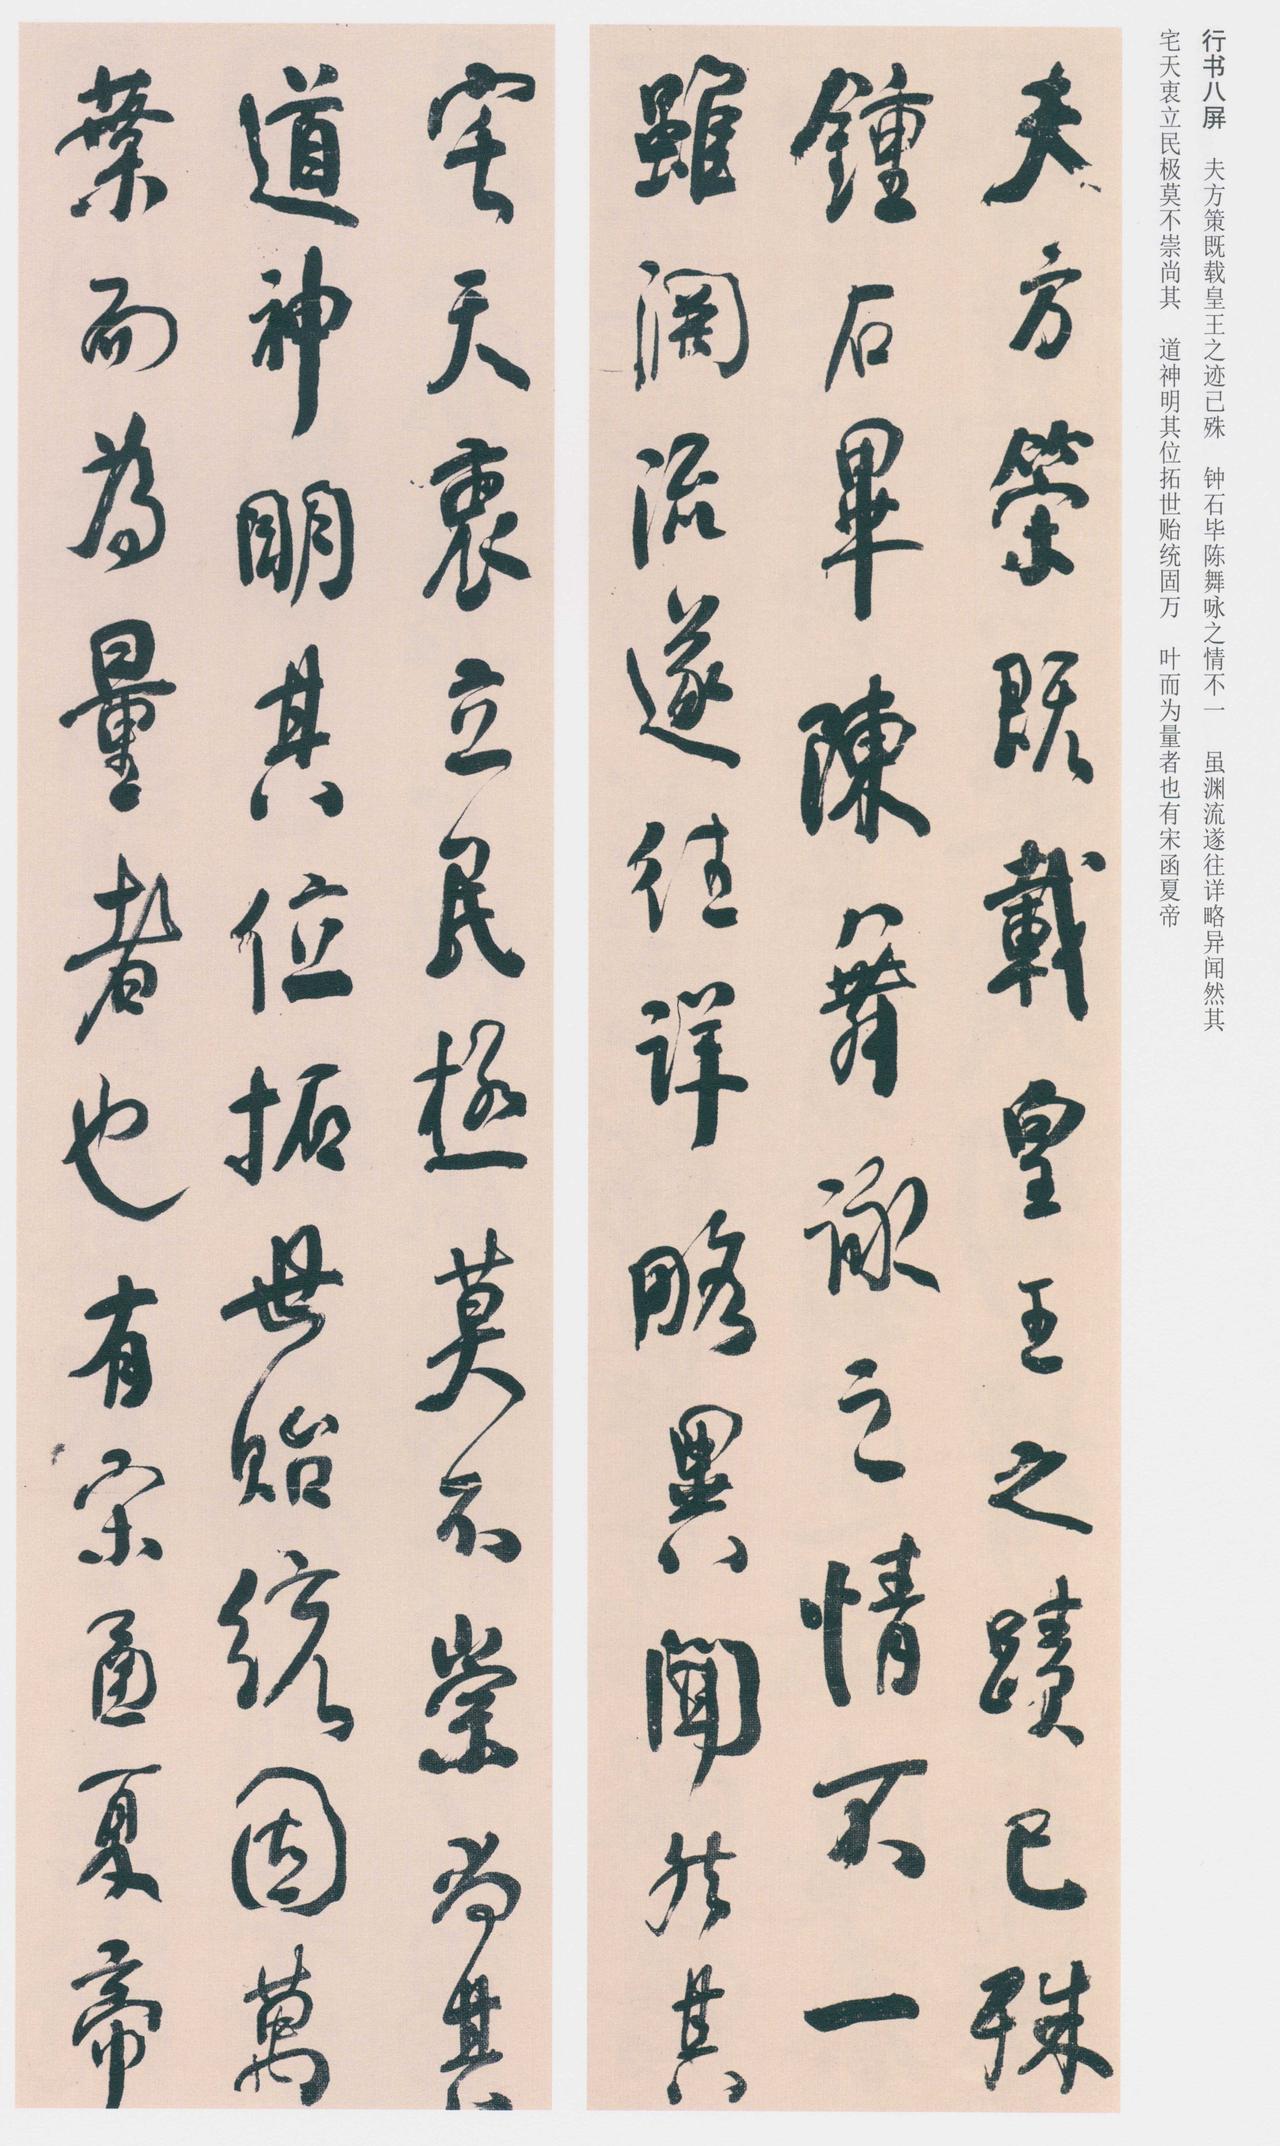 行书八屏 夫方策既载皇王之迹已殊 钟石毕陈舞咏之情不一 虽渊流遂往详略异闻然其
宅天衷立民极莫不崇尚其 道神明其位拓世贻统固万 叶而为量者也有宋函夏帝
夫方策既載皇王之蹟已殊
鍾石畢陳舞詠之情不一
雖淵流遂往詳略異聞然其
宅天衷立民極莫不崇尚其
道神明其位拓世貽統固萬
葉而為量者也有宋函夏帝